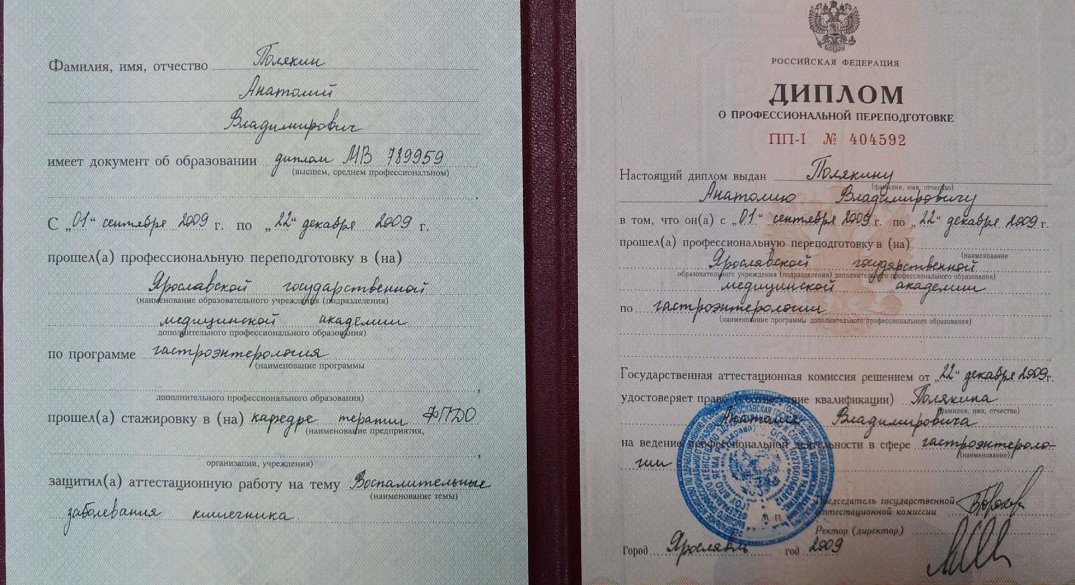 Фамилия, имя, отчество Полякин
Анатолий
Владимирович
имеет документ об образовании диплом МВ 789959
(высшем, среднем профессиональном)
С „01" сентября 2009 г. по „22" декабря 2009 г.
прошел(а) профессиональную переподготовку в (на)
Ярославской государственной
(наименование образовательного учреждения (подразделения)
медицинской академии
дополнительного профессионального образования)
по программе гастроэнтерология
(наименование программы
дополнительного профессионального образования)
прошел(а) стажировку в (на) кафедре терапии ФПДО
(наименование предприятия,
организации, учреждения)
защитил(а) аттестационную работу на тему Воспалительные
(наименование темы)
заболевания кишечника.
РОССИЙСКАЯ ФЕДЕРАЦИЯ
ДИПЛОМ
О ПРОФЕССИОНАЛЬНОЙ ПЕРЕПОДГОТОВКЕ
ПП-I № 404592
Настоящий диплом выдан Полякину
(фамилия, имя, отчество)
Анатолию Владимировичу
в том, что он(а) с „01" сентября 2009 г. по „22" декабря 2009г.
прошел(а) профессиональную переподготовку в (на)
(наименование
Ярославской государственной
образовательного учреждения (подразделения) дополнительного профессионального образования)
медицинской академии
по гастроэнтерологии
(наименование программы дополнительного профессионального образования)
Государственная аттестационная комиссия решением от „22" декабря 2009г.
удостоверяет право (соответствие квалификации) Полякина
(фамилия, имя, отчество)
Анатолия Владимировича
на ведение профессиональной деятельности в сфере гастроэнтероло-
(наименование)
гии
Председатель государственной
аттестационной комиссии
Ректор (директор)
М. П.
Город Ярославль год 2009